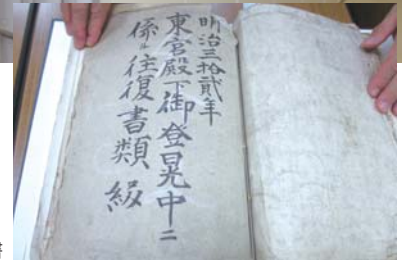 明治三拾貳年
東宮殿下御登晃中ニ
係ル往復書類綴